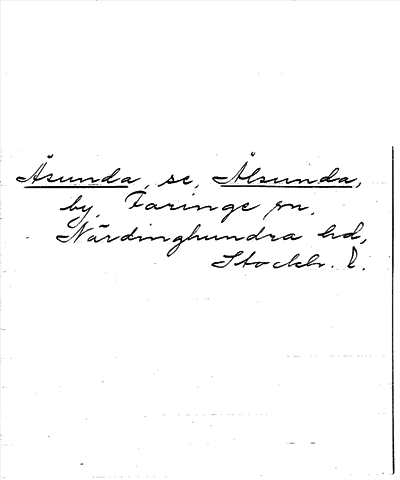 Åsunda, se, Ålsunda,
by, Faringe sn,
Närdinghundra hd,
Stockh. l.